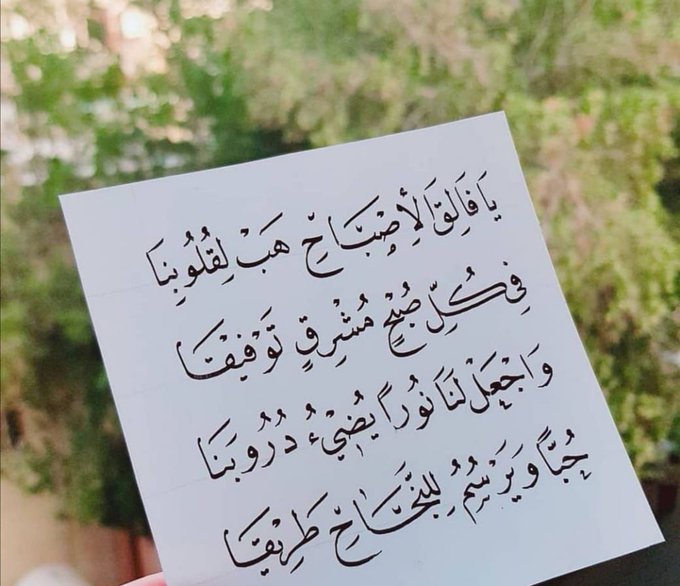 يَا فَالِقَ الْإِصْبَاحِ هَبْ لِقُلُوبِنَا
فِي كُلِّ صُبْحٍ مُشْرِقٍ تَوْفِيْقَا
وَاجْعَلْ لَنَا نُوراً يُضِيْءُ دُرُوبَنَا
حُبَّاً وَيَرْسُمُ لِلنَّجَاحِ طَرِيْقَا